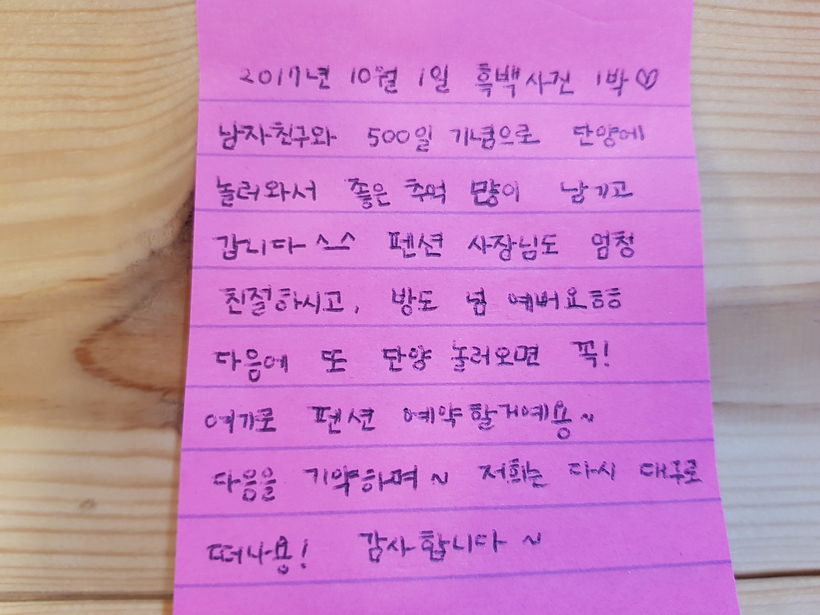 2017년 10월 1일 흑백사진 1박♡
남자친구와 500일 기념으로 단양에
놀러와서 좋은 추억 많이 남기고
갑니다 ^-^ 펜션 사장님도 엄청
친절하시고, 방도 넘 예버요ㅎㅎ
다음에 또 단양 놀러오면 꼭!
여기로 펜션 예약할거예용~
다음을 기약하며~ 저희는 다시 대구로
떠나용! 감사합니다~